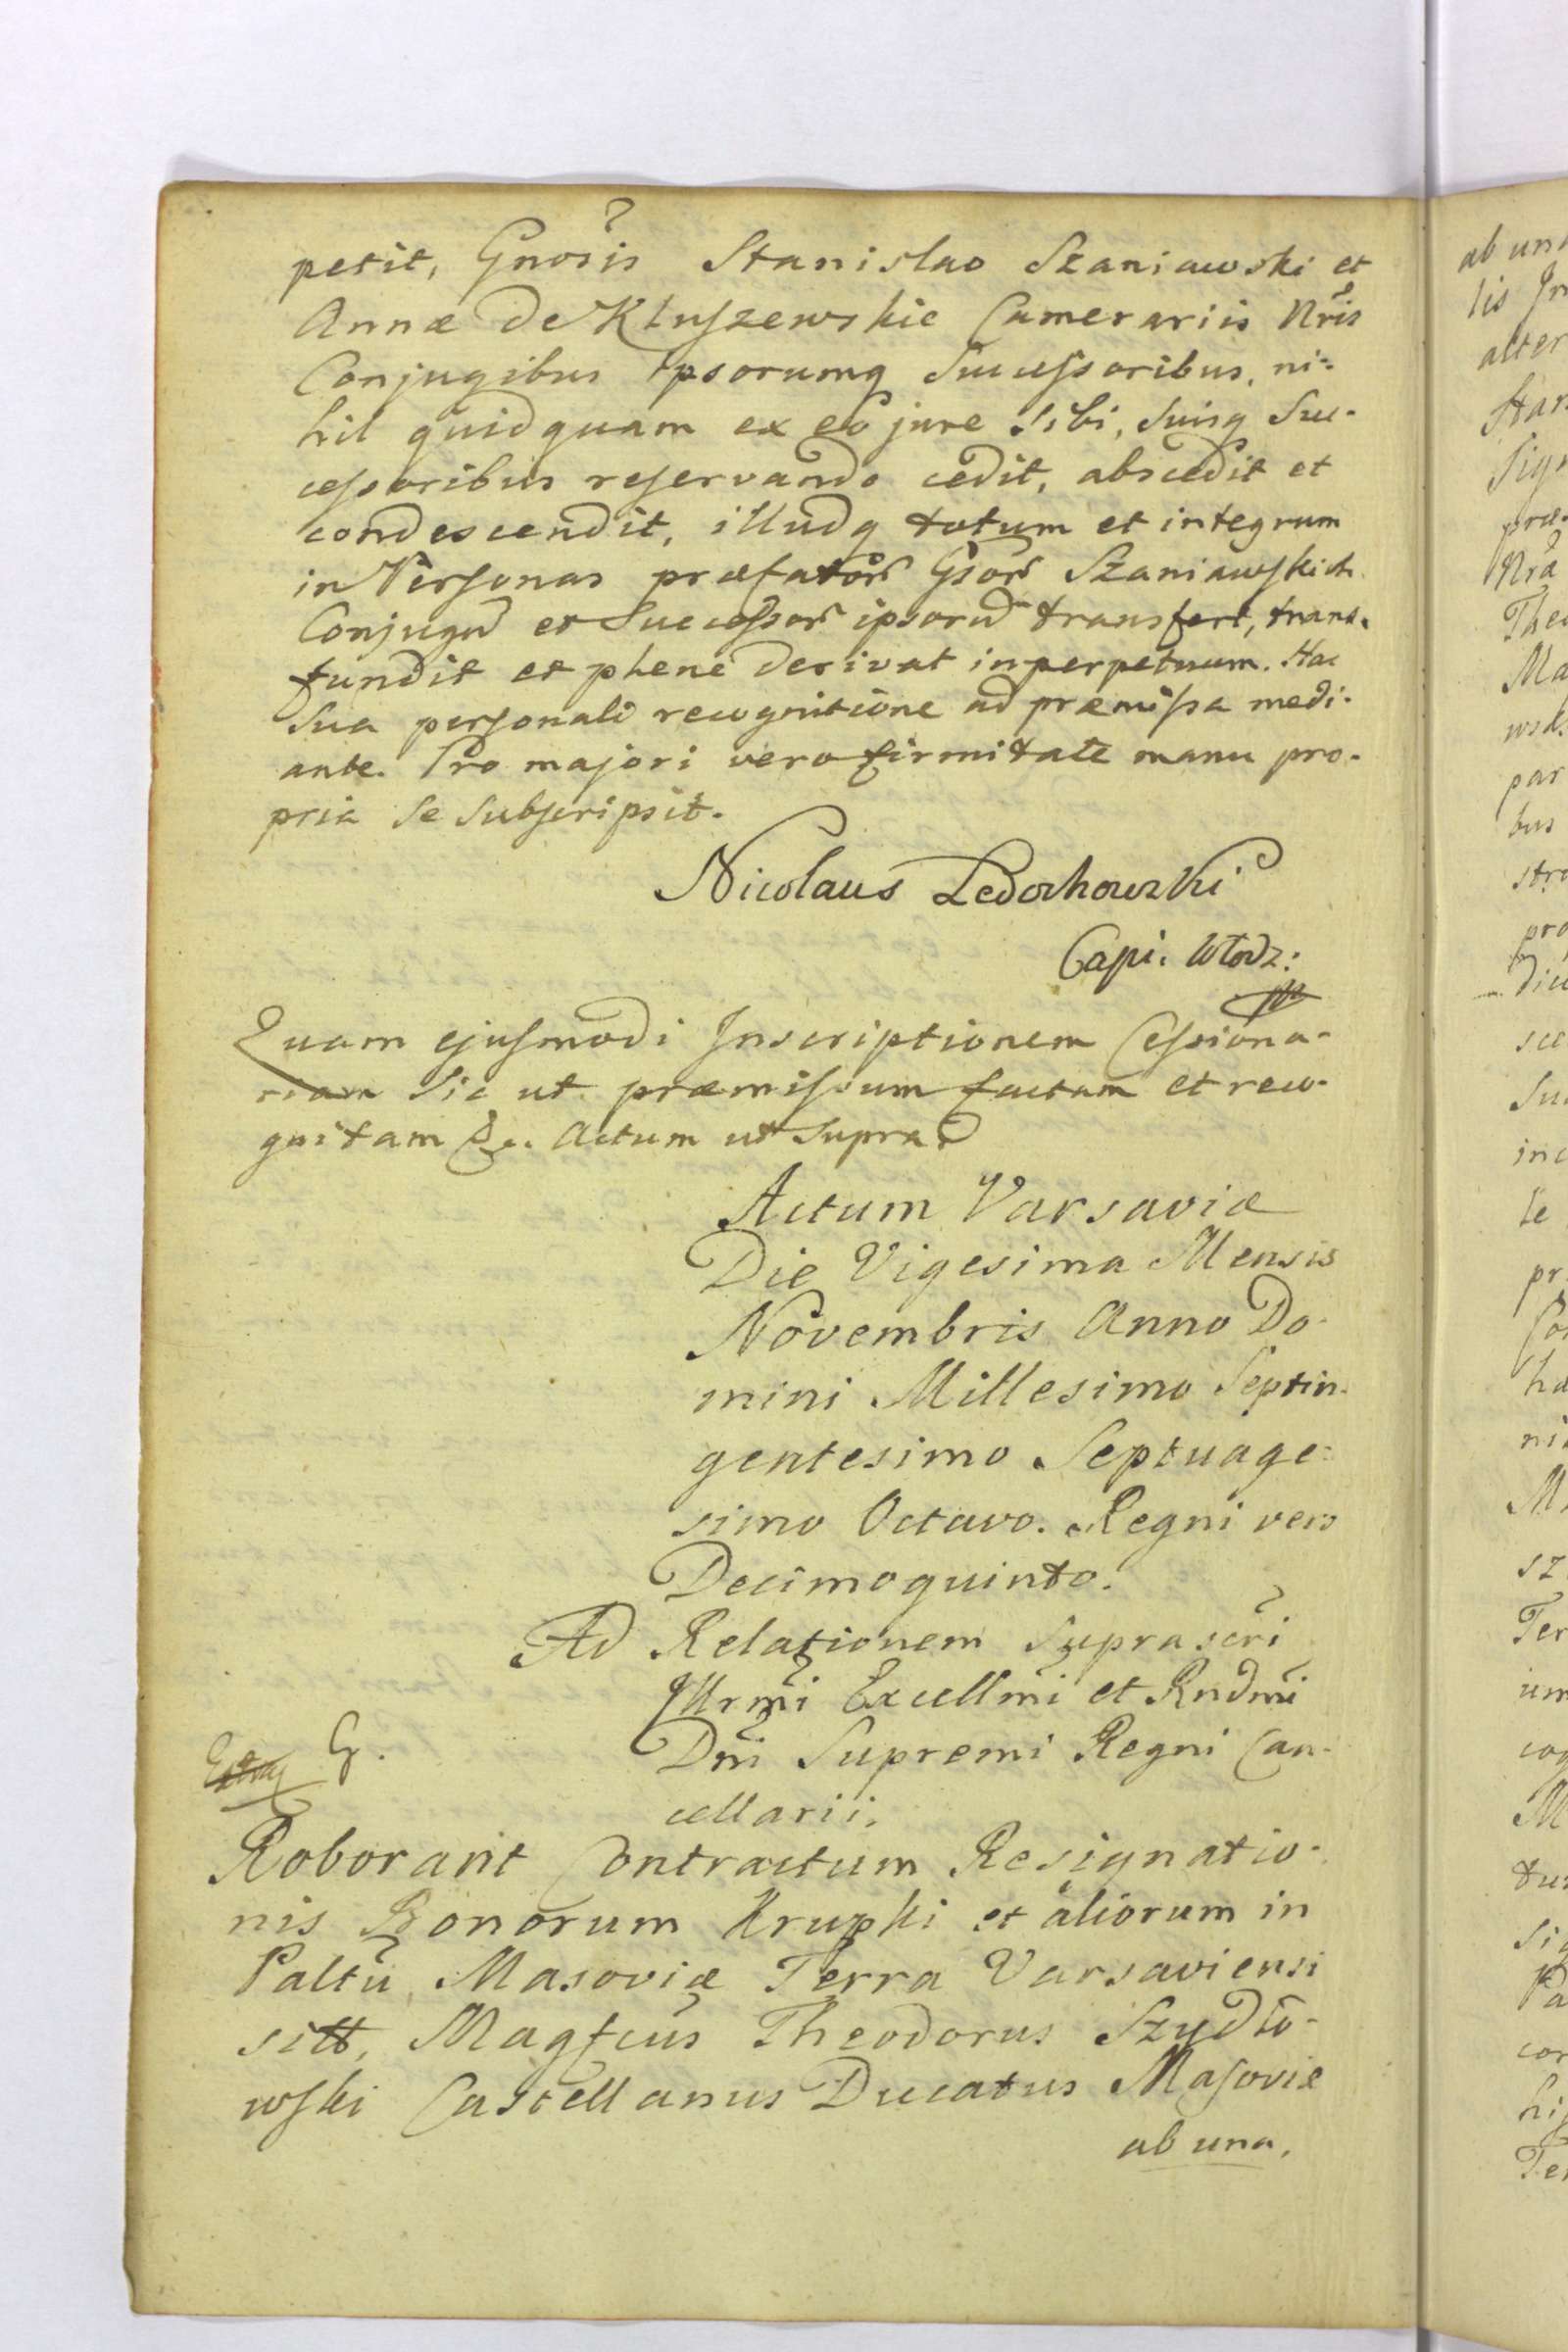 petit, Gnosis Stanislao Szaniawski et
Annæ de Kluszewskie Camerariis Nris
Conjugibus Ipsorumq Successoribus, ni-
hil quidquam ex eo jure sibi, suisq Suc-
cessoribus reservando cedit, abscedit et
condescendit, illudq totum et integrum
in Personas præfator Gsor Szaniawskich
Conjugu et Successor ipsoru transfert, trans-
fundit et plene derivat in perpetuum. Hac
sua personali recognitione ad præmissa medi-
ante. Pro majori vero firmitate manu pro-
pria se subscripsit.
Nicolaus Ledochowski
Capi. Włodz:
Quam ejusmodi Inscriptionem Cessiona-
riam sic ut præmissum factam et reco-
gnitam &c. Actum ut supra
Actum Varsaviæ
Die Vigesima Mensis
Novembris Anno Do-
mini Millesimo Septin-
gentesimo Septuage-
simo Octavo. Regni vero
Decimoquinto.
Ad Relationem Suprascri
Illrmi Excellmi et Rndmi
Dni Supremi Regni Can-
cellarii.
G.
Roborant Contractum Resignatio-
nis Bonorum Krupki et aliorum in
Paltu Masoviæ Terra Varsaviensi
sitt, Magfcus Theodorus Szydło-
wski Castellanus Ducatus Masoviæ
ab una,
ab una
lis
alter